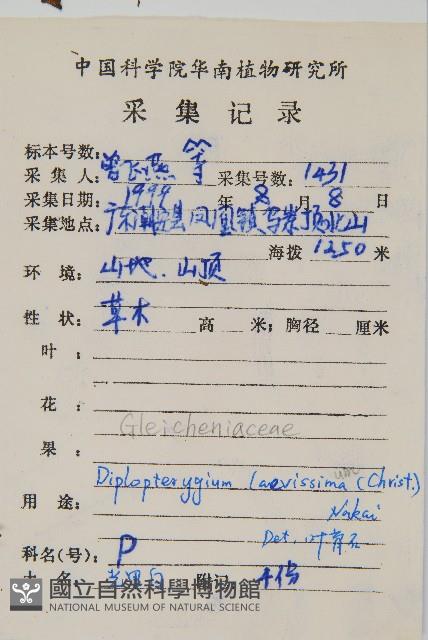 中国科学院华南植物研究所
采集记录
标本号数:
采集人: 曾飞燕 等 采集号数: 1431
采集日期: 1999 年 8 月 8 日
采集地点: 广东 县凤凰镇 顶 山
海拨 1250 米
环境: 山地.山顶
性状: 草本 高 米; 胸径 厘米
叶:
花:
Gleicheniaceae
果:
Diplopterygium laevissima um (Christ.)
用途: Nakai
Det. 叶育石
科名(号): P
土名: 附记 4份
國立自然科學博物館
NATIONAL MUSEUM OF NATURAL SCIENCE